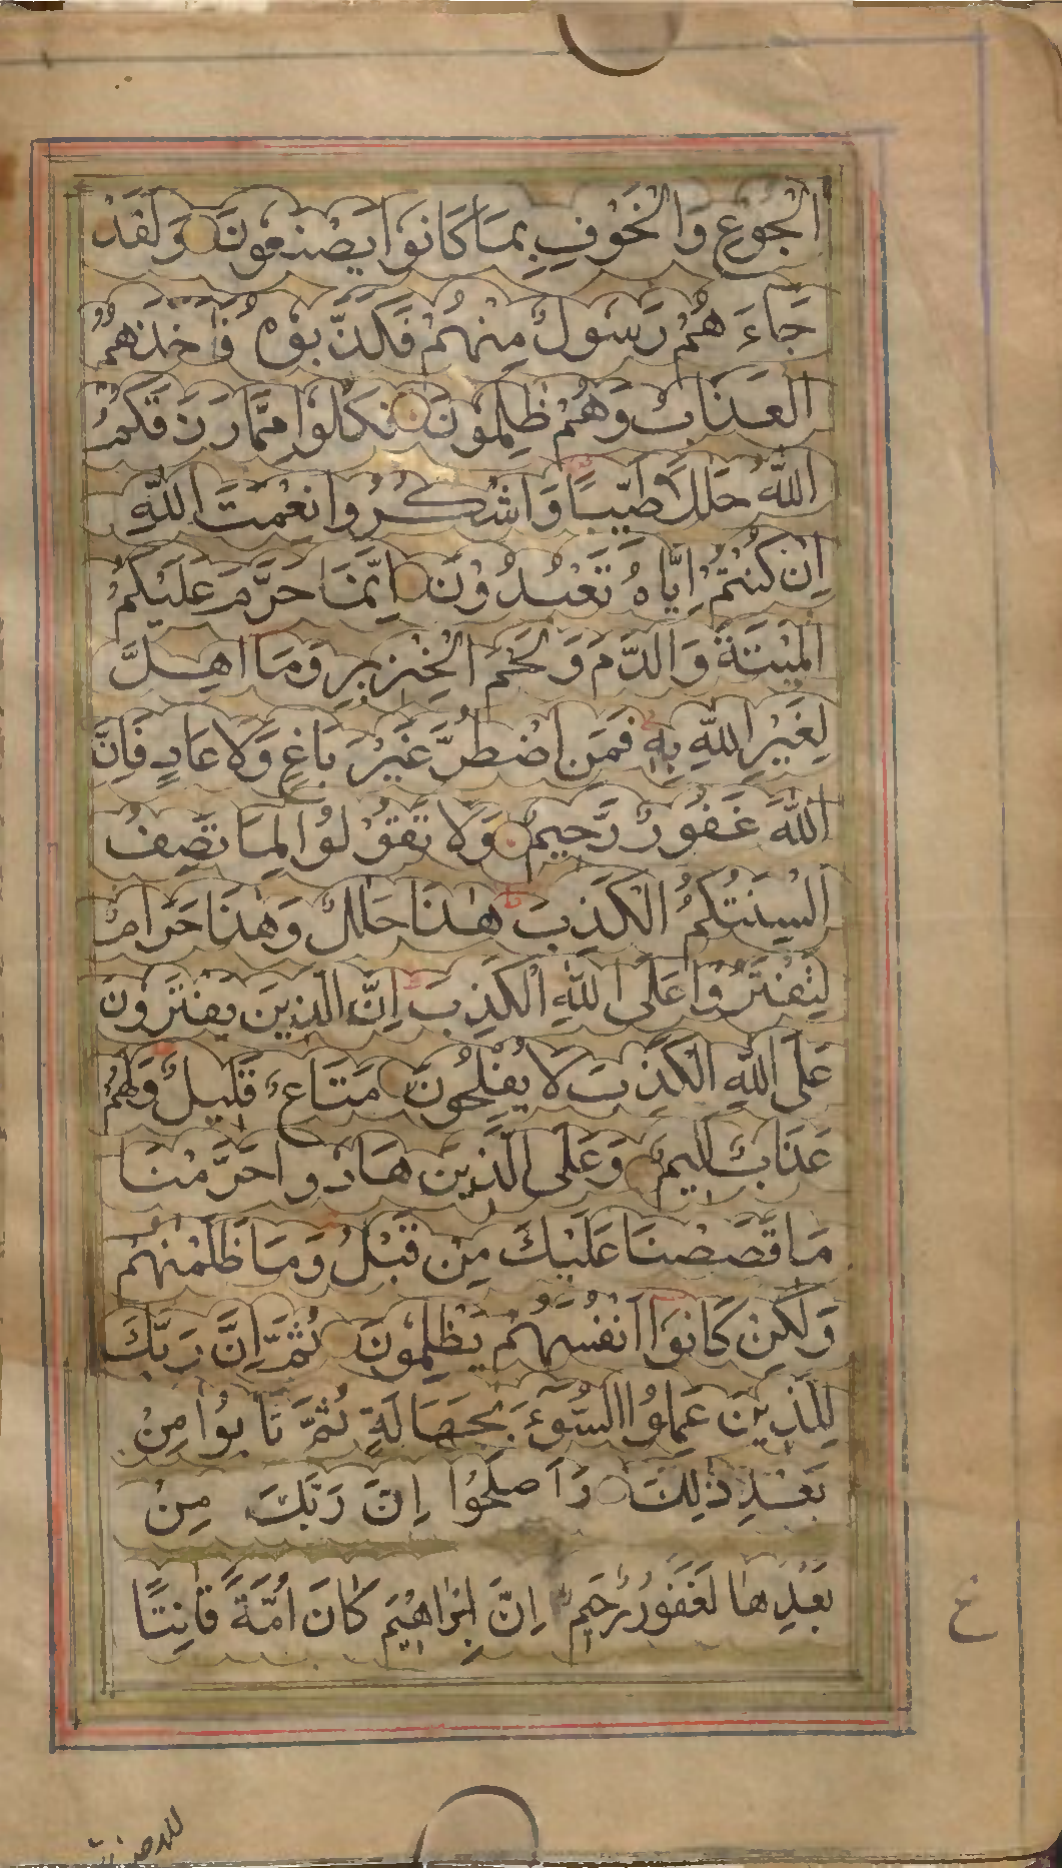 الْجُوْعِ وَالْخَوْفِ بِمَا كَانُوْا يَصْنَعُونَ وَلَقَدْ
جَاءَ هُمْ رَسُولٌ مِنْهُمْ فَكَذَّبُوْهُ فَاَخَذَهُمُ
الْعَذَابُ وَهُمْ ظٰلِمُوْنَ فَكُلُوْا مِمَّا رَزَقَكُمُ
اللّٰهُ حَلٰلًا طَيِّبًا وَاشْكُرُوا نِعْمَتَ اللّٰهِ
اِنْ كُنْتُمْ اِيَّاهُ تَعْبُدُوْنَ اِنَّمَا حَرَّمَ عَلَيْكُمُ
الْمَيْتَةَ وَالدَّمَ وَلَحْمَ الْخِنْزِيْرِ وَمَا اُهِلَّ
لِغَيْرِ اللّٰهِ بِهٖ فَمَنِ اضْطُرَّ غَيْرَ بَاغٍ وَّلَا عَادٍ فَاِنَّ
اللّٰهَ غَفُوْرٌ رَّحِيْمٌ وَلَا تَقُوْلُوْا لِمَا تَصِفُ
اَلْسِنَتُكُمُ الْكَذِبَ هٰذَا حَلٰلٌ وَهٰذَا حَرَامٌ
لِتَفْتَرُوْا عَلَى اللّٰهِ الْكَذِبَ اِنَّ الَّذِينَ يَفْتَرُوْنَ
عَلَى اللّٰهِ الْكَذِبَ لَا يُفْلِحُوْنَ مَتَاعٌ قَلِيْلٌ وَلَهُمْ
عَذَابٌ اَلِيْمٌ وَعَلَى الَّذِيْنَ هَادُوا حَرَّمْنَا
مَا قَصَصْنَا عَلَيْكَ مِنْ قَبْلُ وَمَا ظَلَمْنٰهُمْ
وَلٰكِنْ كَانُوْا اَنْفُسَهُمْ يَظْلِمُوْنَ ثُمَّ اِنَّ رَبَّكَ
لِلَّذِيْنَ عَمِلُوا السُّوْٓءَ بِجَهَالَةٍ ثُمَّ تَابُوْا مِنْ
بَعْدِ ذٰلِكَ وَاَصْلَحُوْا اِنَّ رَبَّكَ مِنْ
بَعْدِهَا لَغَفُوْرٌ رَحِيْمٌ اِنَّ اِبْرَاهِيْمَ كَانَ اُمَّةً قَانِتًا
ع